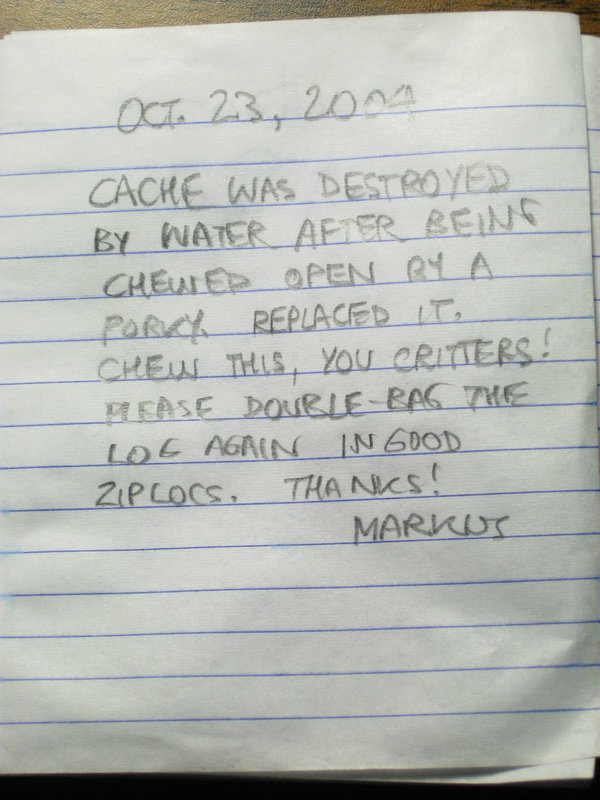 OCT. 23, 2004
CACHE WAS DESTROYED
BY WATER AFTER BEING
CHEWED OPEN BY A
PORKY. REPLACED IT.
CHEW THIS, YOU CRITTERS!
PLEASE DOUBLE-BAG THE
LOG AGAIN IN GOOD
ZIPLOCS. THANKS!
MARKUS